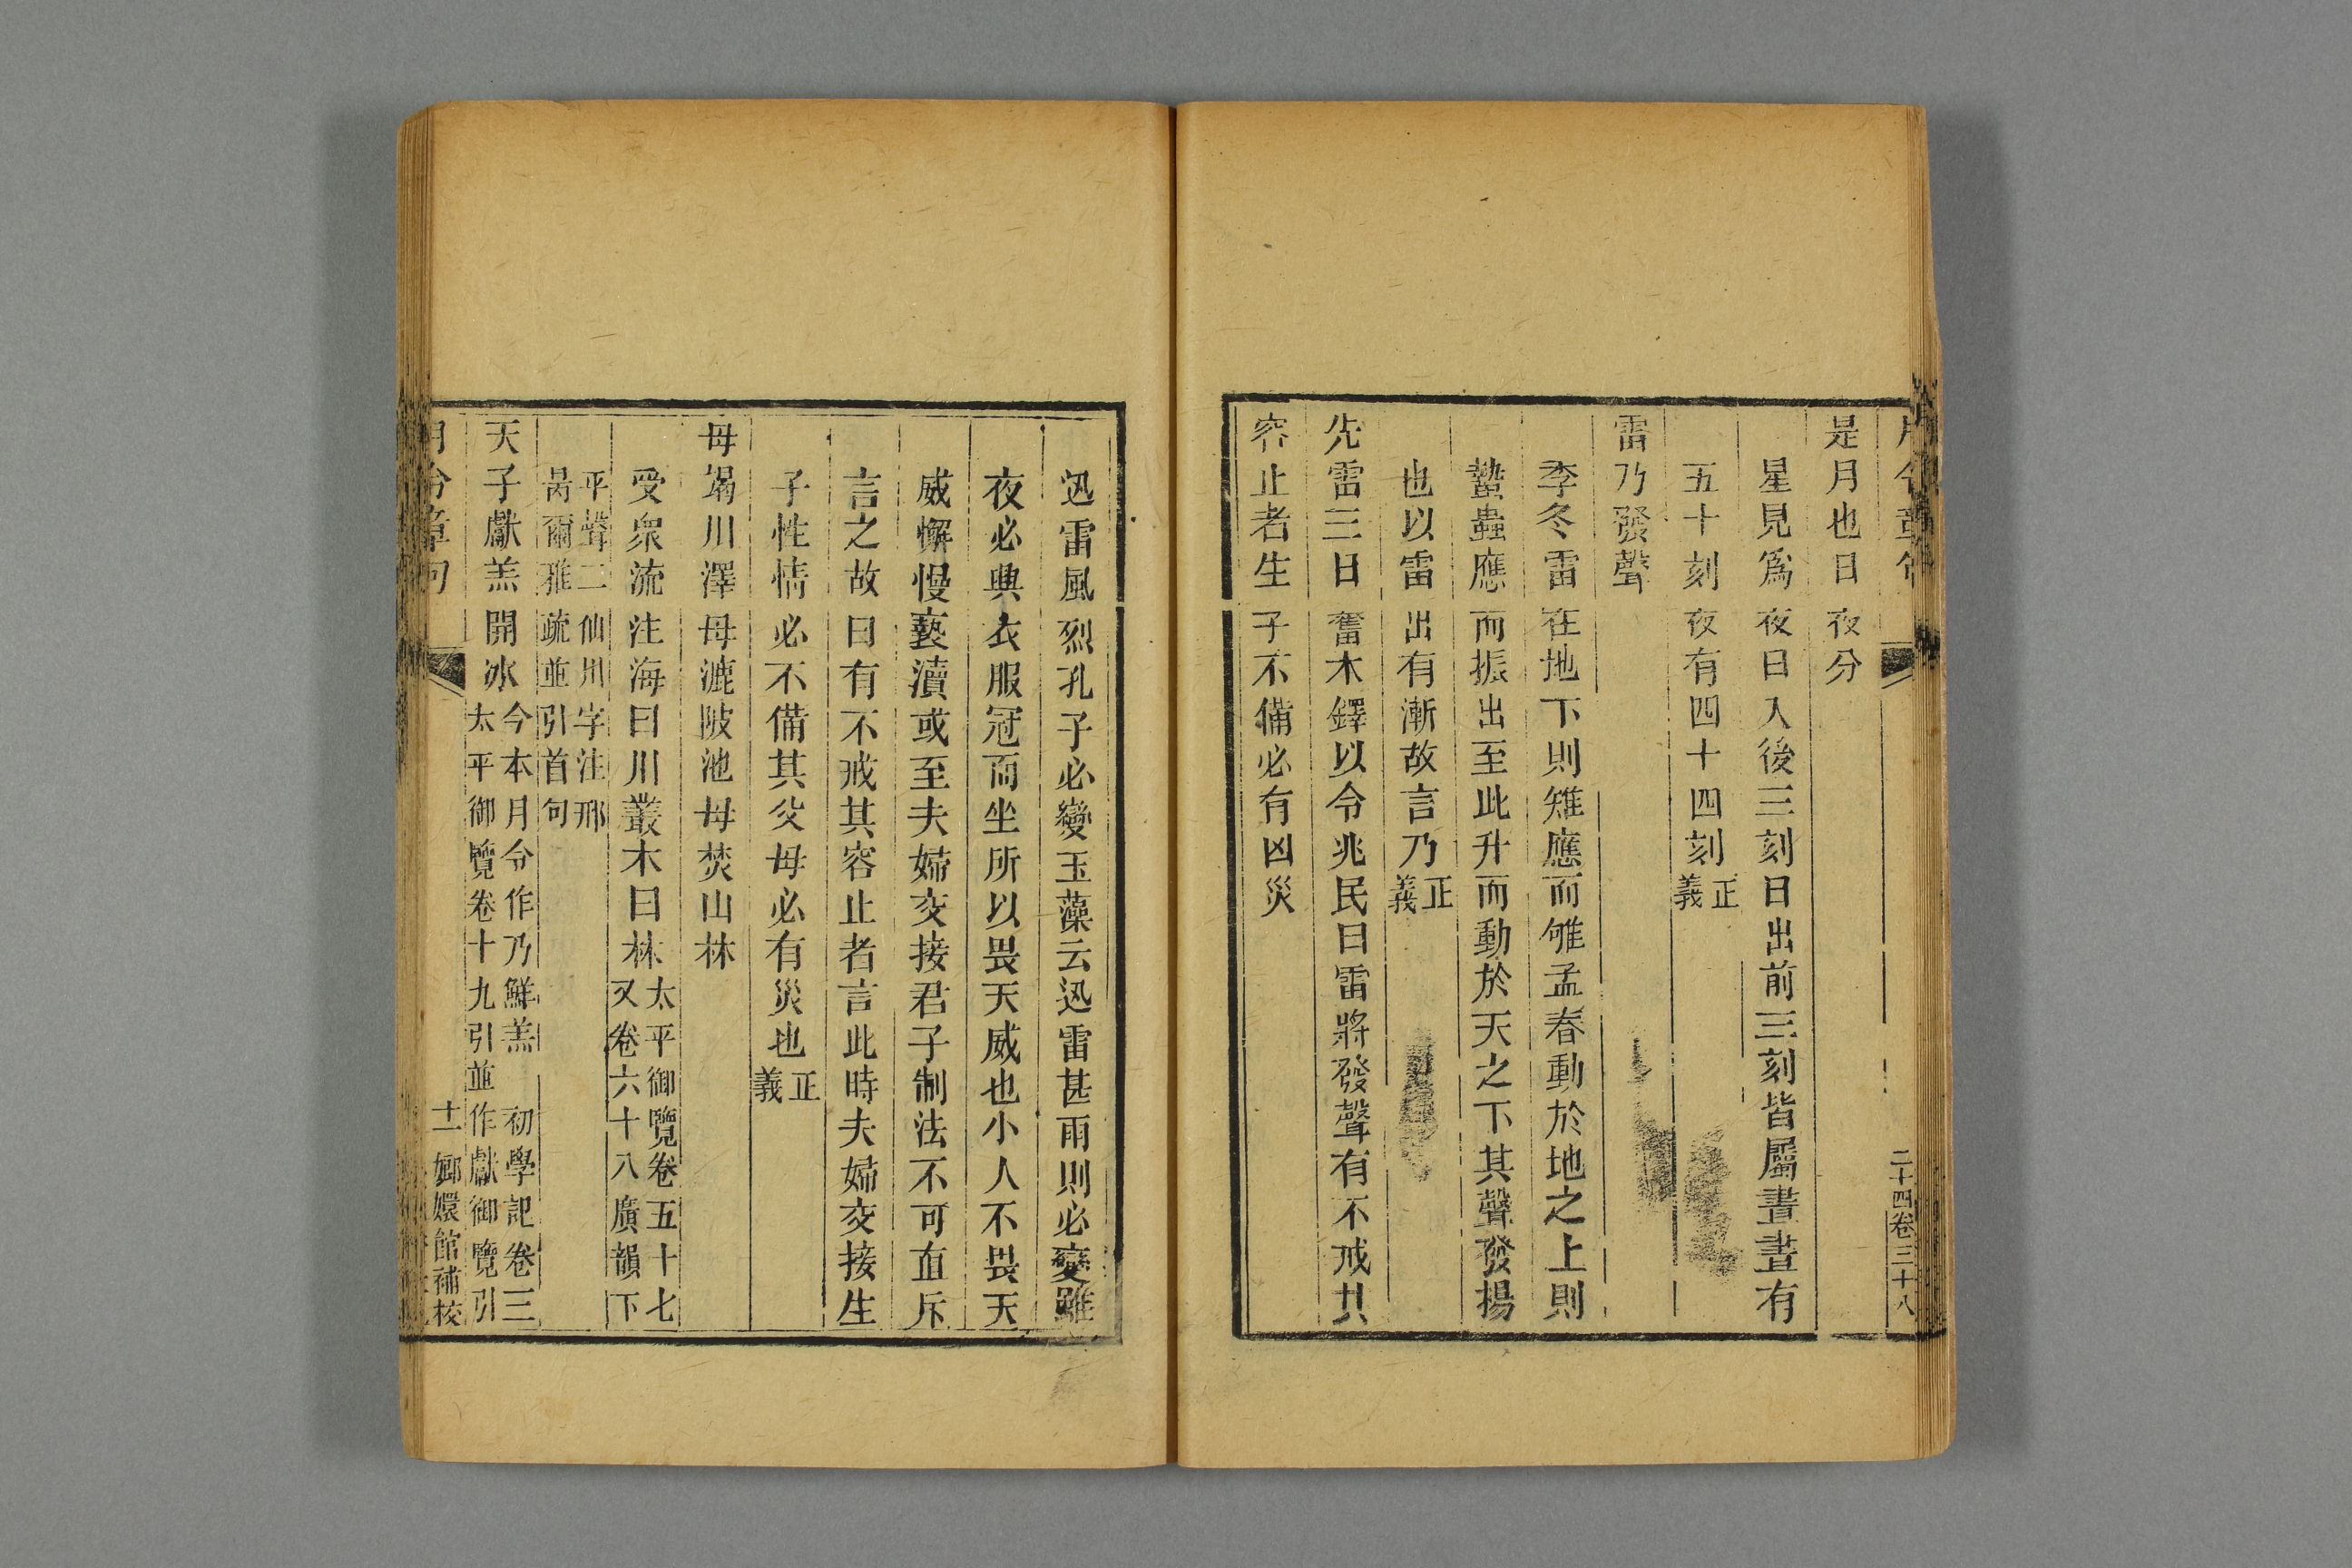 月令章句
二十四卷三十八
是月也日夜分
星見爲夜日入後三刻日出前三刻皆屬晝晝有
五十刻夜有四十四刻正義
雷乃發聲
季冬雷在地下則雉應而雊孟春動於地之上則
蟄蟲應而振出至此升而動於天之下其聲發揚
也以雷出有漸故言乃正義
先雷三日奮木鐸以令兆民曰雷將發聲有不戒其
容止者生子不備必有凶災
迅雷風烈孔子必變玉藻云迅雷甚雨則必變雖
夜必興衣服冠而坐所以畏天威也小人不畏天
威懈慢褻瀆或至夫婦交接君子制法不可直斥
言之故曰有不戒其容止者言此時夫婦交接生
子性情必不備其父母必有災也正義
毋竭川澤毋漉陂池毋焚山林
受衆流注海曰川叢木曰林太平御覽卷五十七
又卷六十八廣韻下
平聲二仙川字注邢
昺爾雅疏並引首句
天子獻羔開冰今本月令作乃鮮羔 初學記卷三
太平御覽卷十九引並作獻御覽引
月令章句
十一 嫏嬛館補校